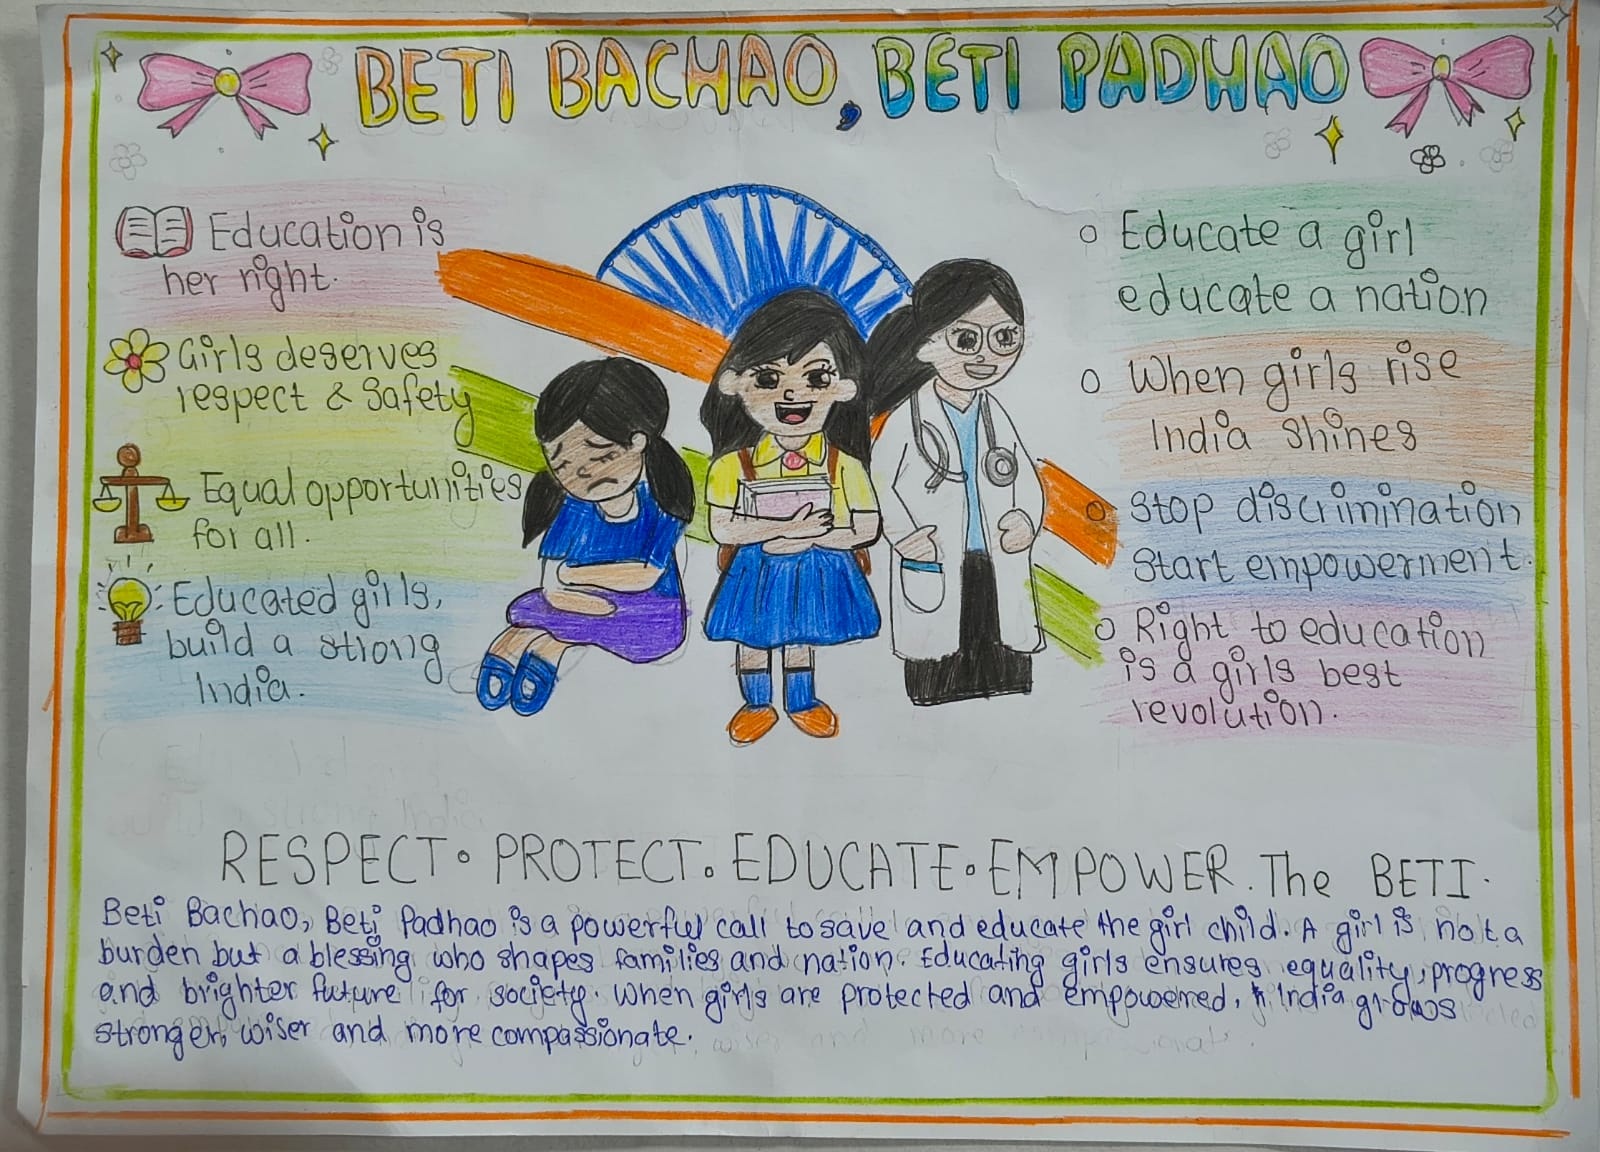 BETI BACHAO, BETI PADHAO
Education is
her right.
Girls deserves
respect & Safety
Equal opportunities
for all.
Educated girls,
build a strong
India.
Educate a girl
educate a nation
When girls rise
India shines
Stop discrimination
Start empowerment.
Right to education
is a girls best
revolution.
RESPECT. PROTECT. EDUCATE. EMPOWER. The BETI.
Beti Bachao, Beti Padhao is a powerful call to save and educate the girl child. A girl is not a
burden but a blessing who shapes families and nation. Educating girls ensures equality, progress
and brighter future for society. When girls are protected and empowered, India grows
stronger, wiser and more compassionate.